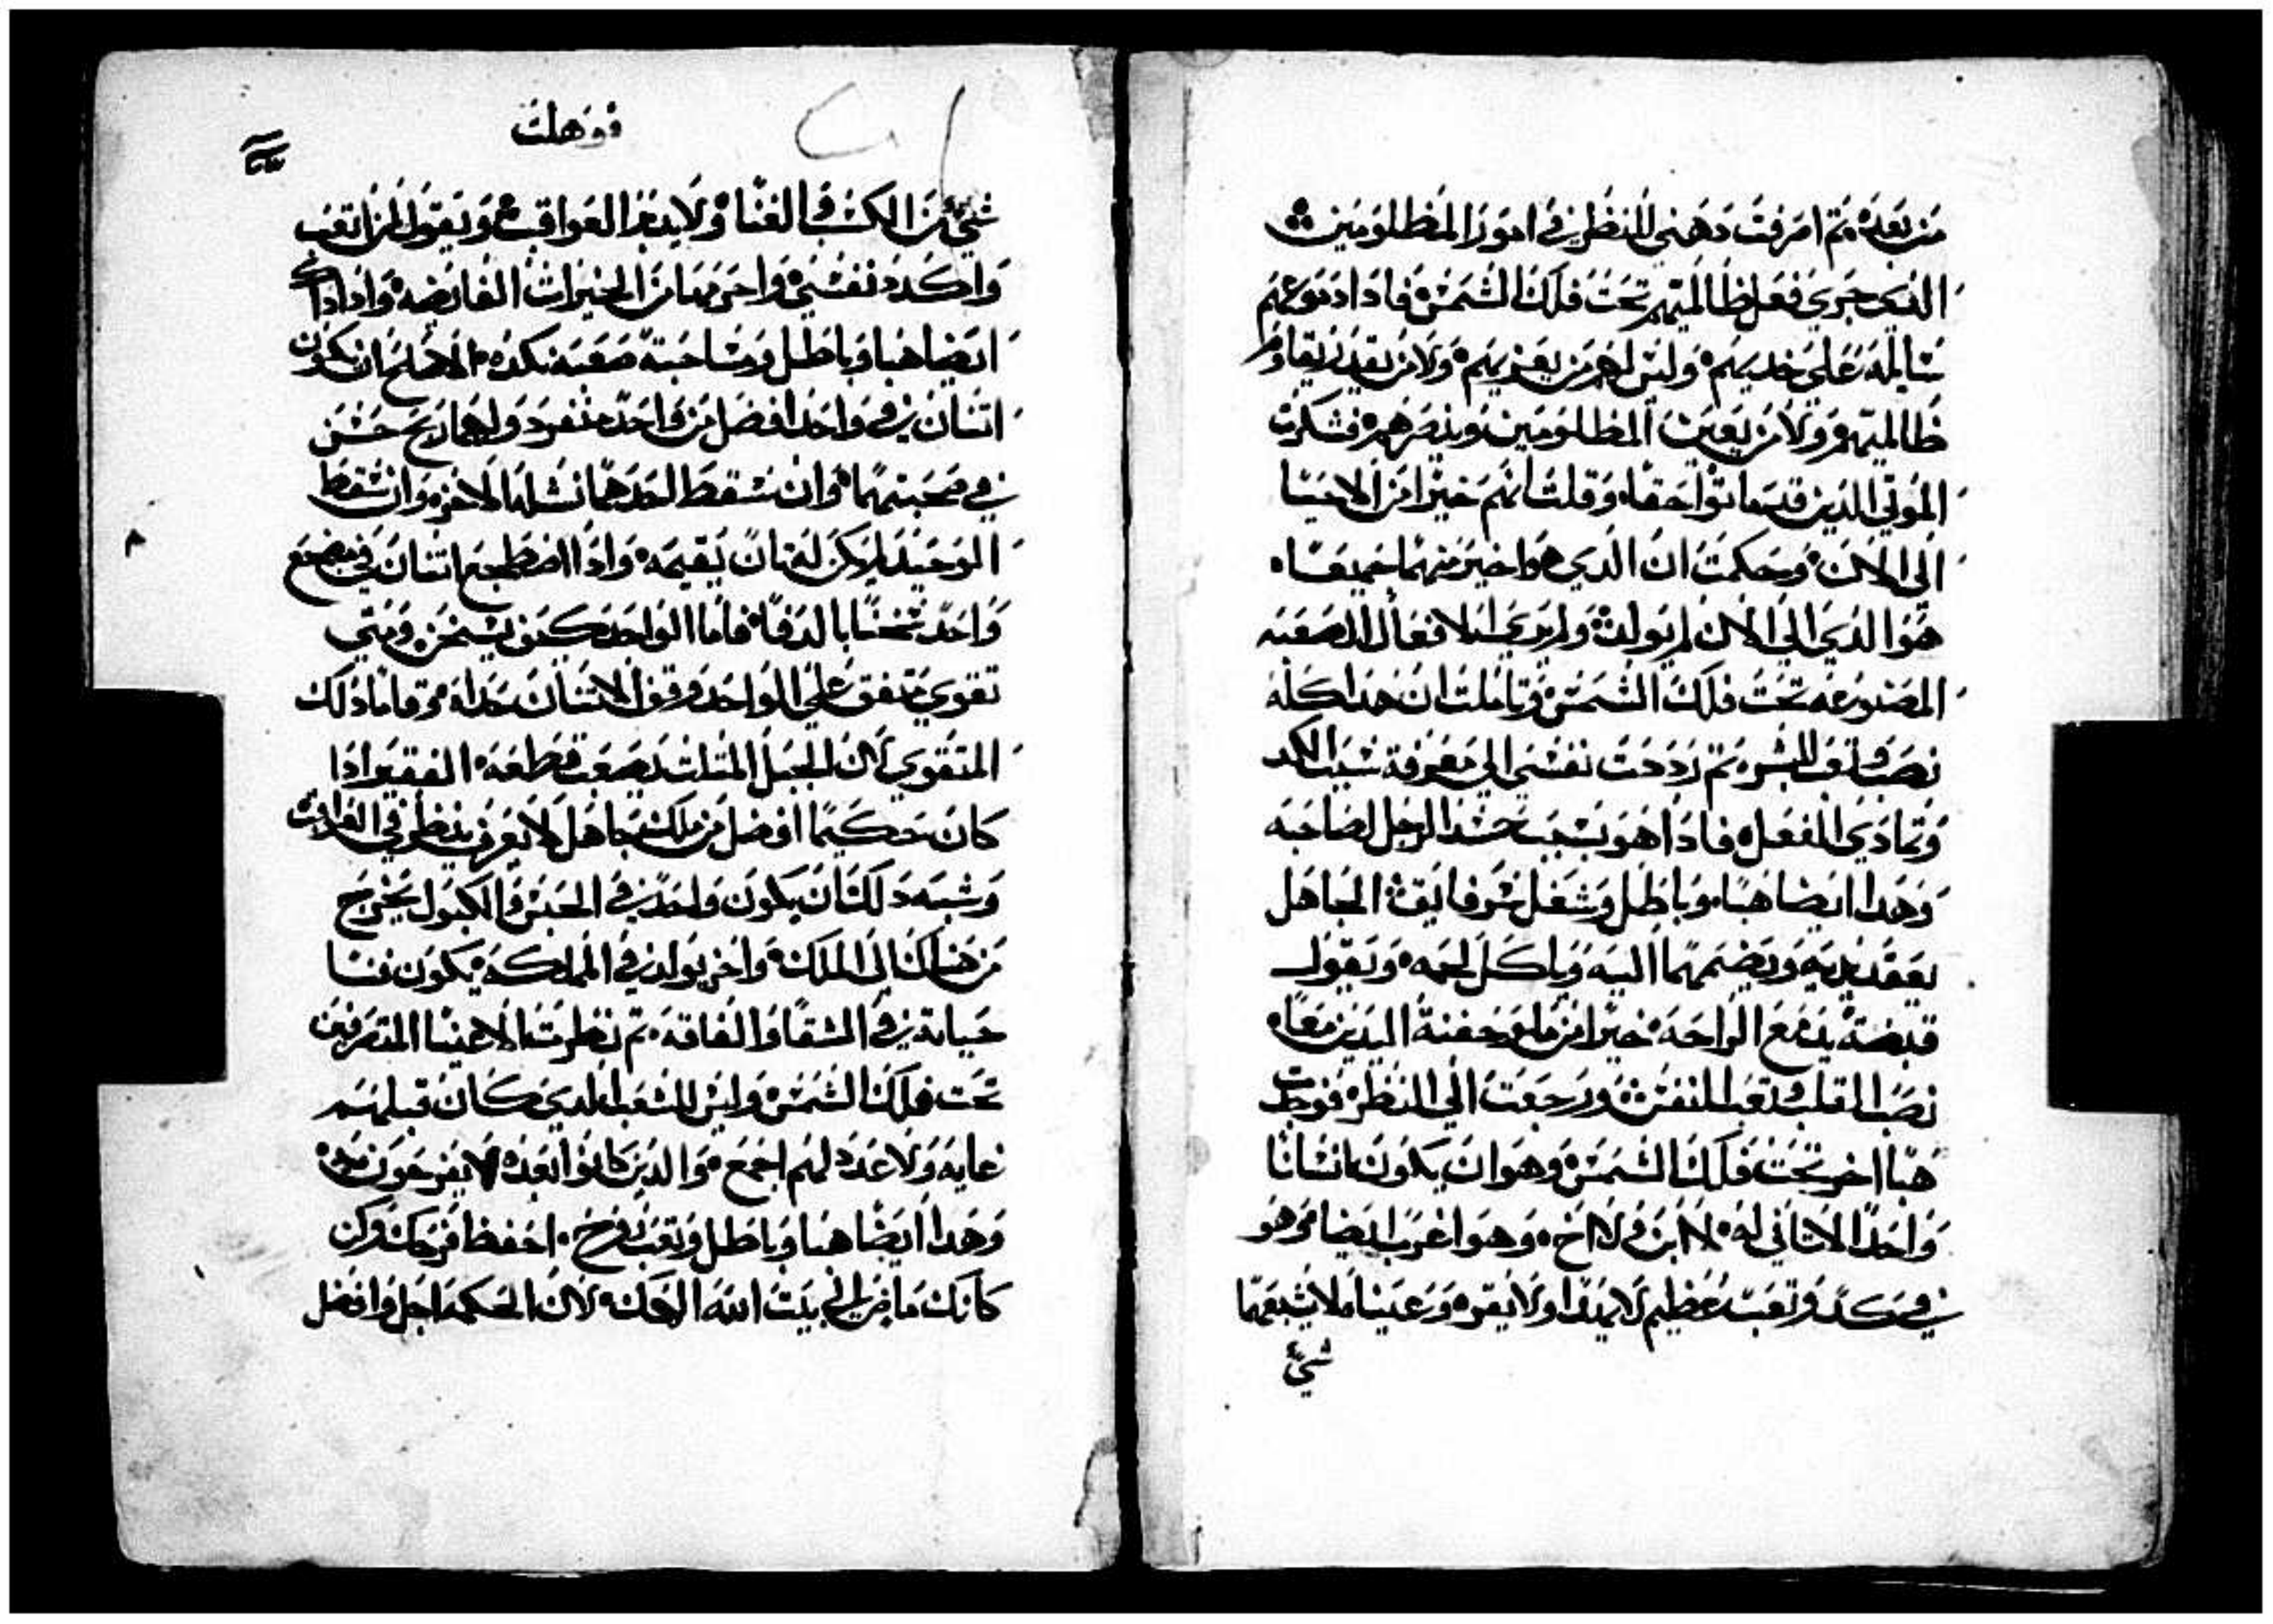 من بعده ثم امرفت دهني للنظر في امور المظلومين
الدي جري فعل ظالميهم تحت فلك الشمس فادا دموعهم
سايله علي خديهم وليس لهم من يعزيهم ولا من يقدر يقاوم
ظالميهم ولا من يعين المظلومين وينصرهم فشكرت
الموتي الدين قد ماتوا حقا وقلت انهم خيرا من الاحيا
الي الان وحكمت ان الدي هوا خير منهما جميعا
هوا لدي الي الان لم يولد ولم يري الافعال الصعبه
المصنوعه تحت فلك الشمس وتاملت ان هدا كله
نصب وتعب البشر تم رددت نفسي الي معرفة سبب الكد
وتمادي الفعل فادا هو بسبب حسد الرجل لصاحبه
وهدا ايضا هبا وباطل وشغل فايق الجاهل
يعقد يديه ويضمهما اليه وياكل لحمه ويقول
قبضة يد مع الراحه خيرا من ملو حفنة اليدين معا
نصب القلب وتعب النفس ورجعت الي النظر فوجدت
هبا اخر تحت فلك الشمس وهو ان يكون انسانا
واحدا لا تاني له لا ابن ولا اخ وهو اغرب ايضا وهو
في كد وتعب عظيم لا يهدا ولا يقر وعيناه لا يشبعهما
شيء
فوهلت
شيء من الكسب والغنا ولا يدبر العواقب ويقول لمن اتعب
واكدد نفسي واحرمها من الخيرات الفايضه وادا داك
ايضا هبا وباطل ومصاحبة صعبه نكده الاصلح ان يكون
اتنان في واحد افضل من واحد منفرد ولهما ربح حسن
في صحبتهما وان سقط احدهما نشله الاخر وان سقط
الوحيد لم يكن له تان يقيمه وادا اضطجع اتنان في مضجع
واحد سخنا بالدفا فاما الواحد كيف يسخن ومتي
تقوي متفق علي الواحد وقف الاتنان حداه وقاما دلك
المتقوي لان الحبل المتلت يصعب قطعه الفقير ادا
كان حكيما افضل من ملك جاهل لا يعرف ينظر في العواقب
وشبه دلك ان يكون واحد في الحبس والكبول يخرج
من هناك الي الملك واخر يولد في المملكه يكون فنا
حياته في الشقا والفاقه تم نظرت الاحيا المتصرفين
تحت فلك الشمس وليس للشعب الدي كان قبلهم
غايه ولا عدد لهم اجمع والدين كانوا بعده لا يفرحون به
وهدا ايضا هبا وباطل وتعب روح احفظ قدمك وكن
كانك ماضي الي بيت الله الهك لان الحكمه اجل وافضل